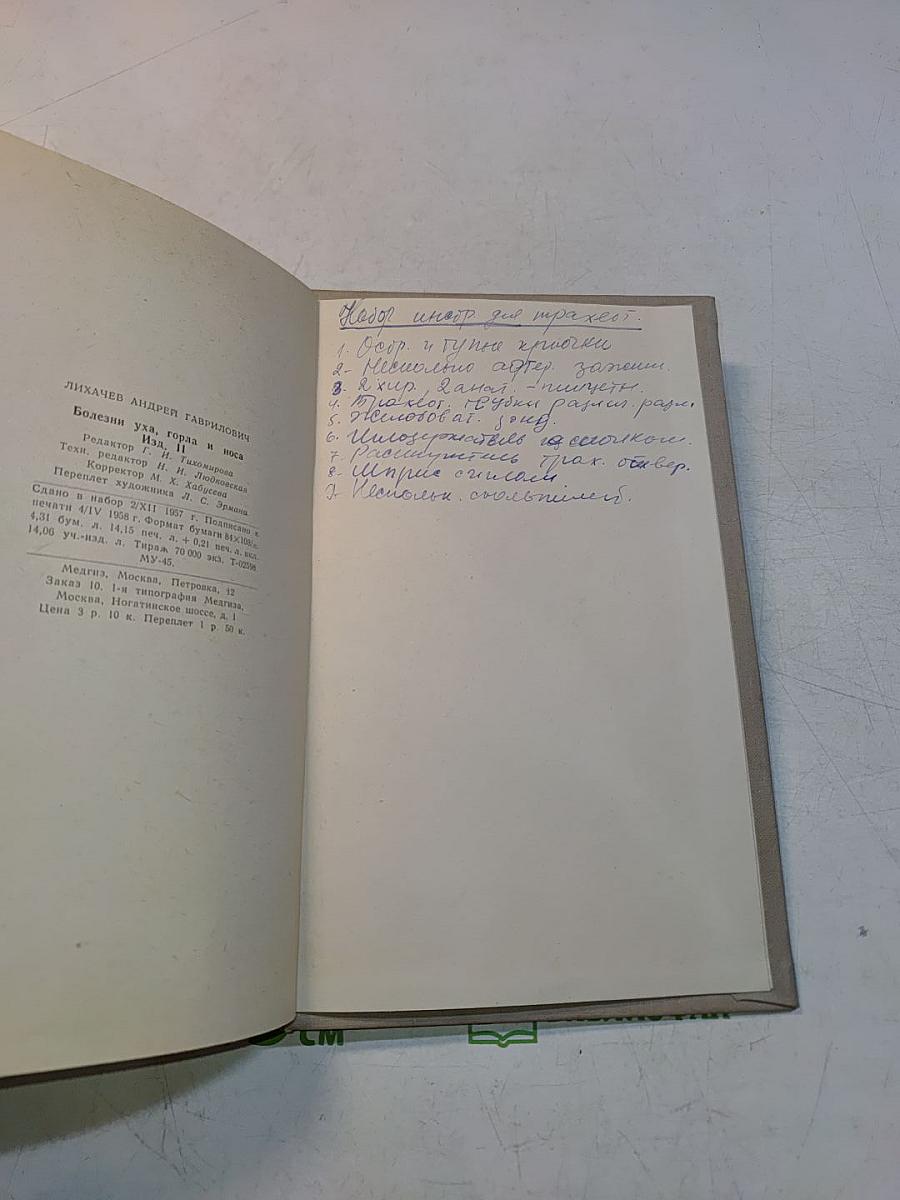 ЛИХАЧЕВ АНДРЕЙ ГАВРИЛОВИЧ
Болезни уха, горла и носа
Изд. II
Редактор Г. И. Тихомирова
Техн. редактор Н. И. Людковская
Корректор М. Х. Хабусева
Переплет художника Л. С. Эрмана
Сдано в набор 2/XII 1957 г. Подписано к
печати 4/IV 1958 г. Формат бумаги 84×108/
4,31 бум. л. 14,15 печ. л. + 0,21 печ. л. вкл.
14,06 уч.-изд. л. Тираж 70 000 экз. Т-02598
МУ-45.
Медгиз, Москва, Петровка, 12
Заказ 10. 1-я типография Медгиза,
Москва, Ногатинское шоссе, д. 1
Цена 3 р. 10 к. Переплет 1 р. 50 к.
Набор инстр. для трахеот.
1. Остр. и тупые крючки
2- Несколько артер. зажим.
3. 2 хир. 2 анат. - пинцеты.
4. Трахеот. трубки различ. разм.
5. Желобоват. зонд.
6. Иглодержатель
7 Расширитель трах. отвер.
8- Шприс с иглами
9- Нескольк. скальпелей.
СМ